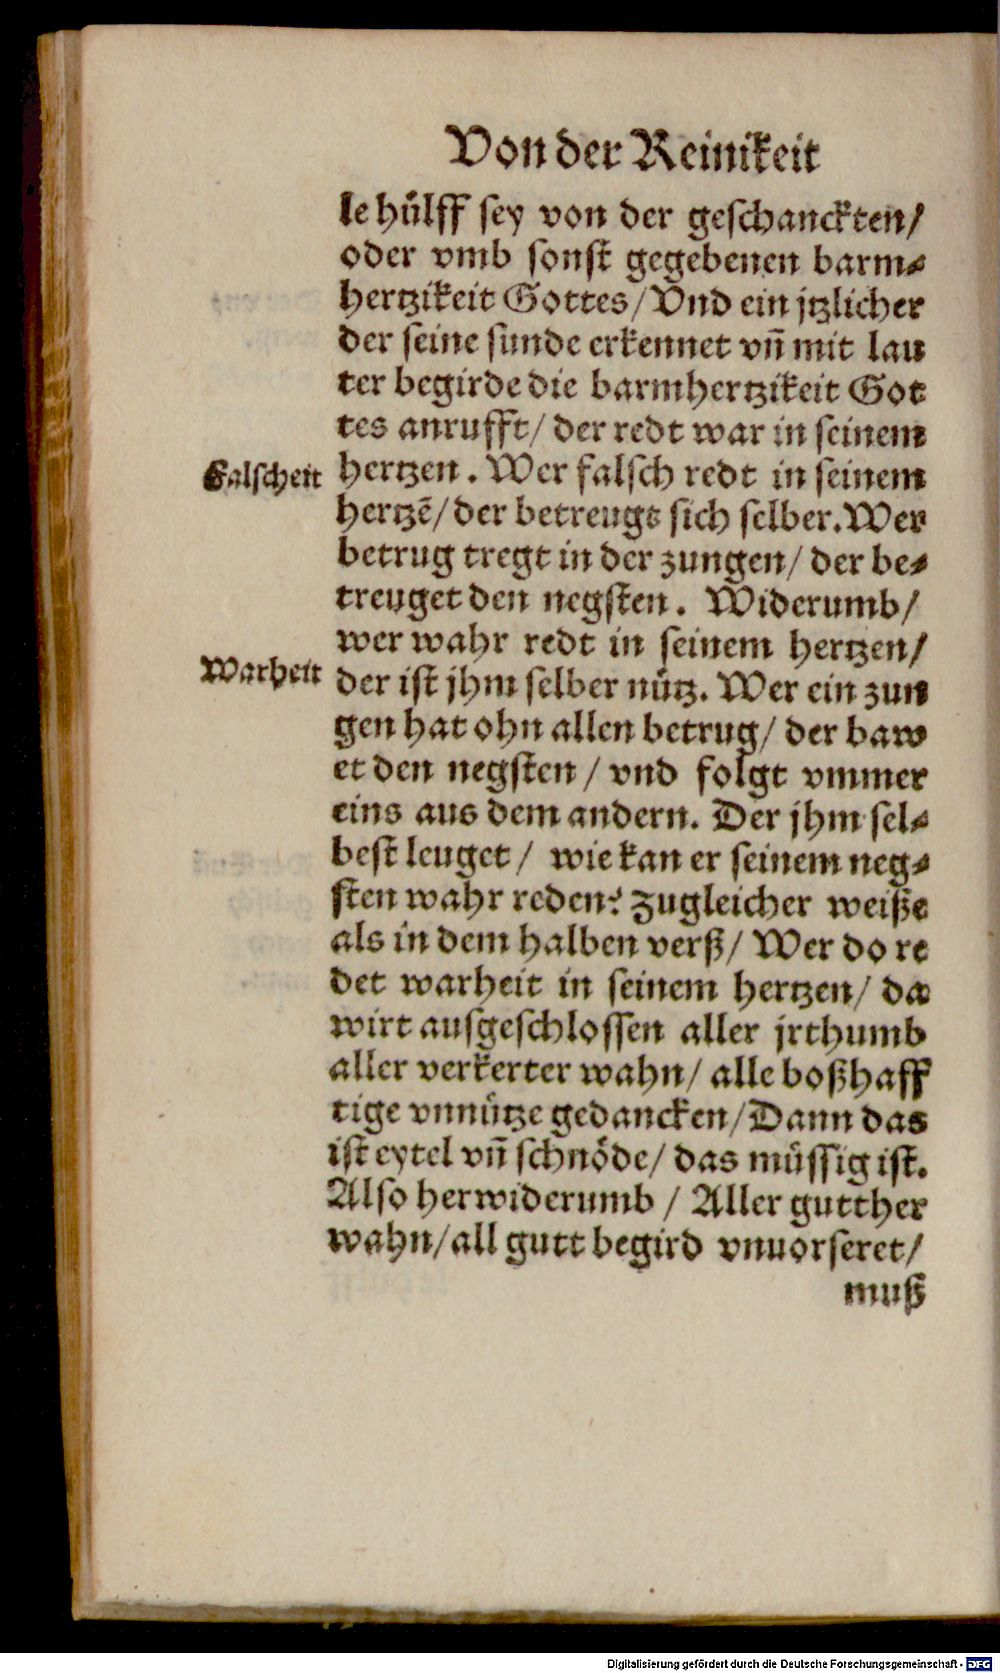 Von der Reinikeit
le hülff sey von der geschanckten/
oder vmb sonst gegebenen barm⸗
hertzikeit Gottes/ Vnd ein jtzlicher
der seine sunde erkennet vn̄ mit lau
ter begirde die barmhertzikeit Got
tes anrufft/ der redt war in seinem
Falscheit
hertzen. Wer falsch redt in seinem
hertzē/ der betreugt sich selber. Wer
betrug tregt in der zungen/ der be⸗
treuget den negsten. Widerumb/
wer wahr redt in seinem hertzen/
Warheit
der ist jhm selber nütz. Wer ein zun
gen hat ohn allen betrug/ der baw
et den negsten/ vnd folgt vmmer
eins aus dem andern. Der jhm sel⸗
best leuget/ wie kan er seinem neg⸗
sten wahr reden? Zugleicher weiße
als in dem halben verß/ Wer do re
det warheit in seinem hertzen/ da
wirt ausgeschlossen aller jrthumb
aller verkerter wahn/ alle boßhaff
tige vnnütze gedancken/ Dann das
ist eytel vn̄ schnöde/ das müssig ist.
Also herwiderumb/ Aller gutther
wahn/ all gutt begird vnuorseret/
muß
Digitalisierung gefördert durch die Deutsche Forschungsgemeinschaft - DFG